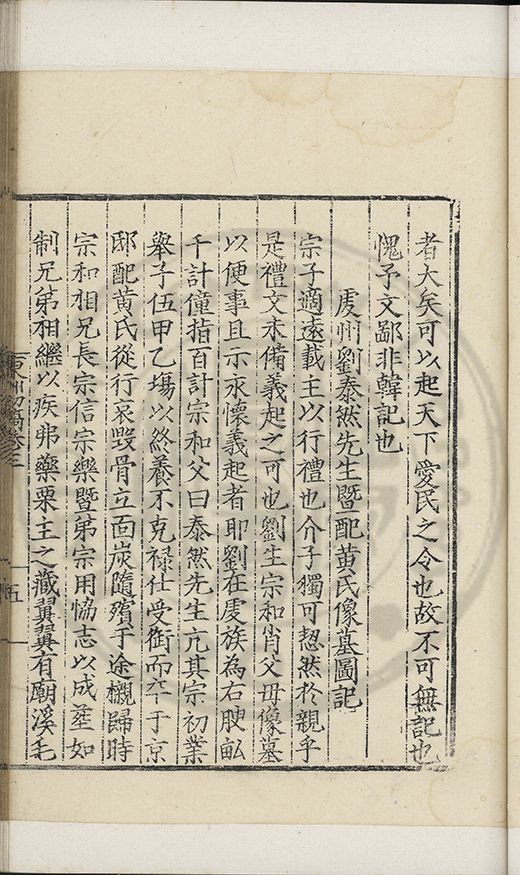 者大矣可以起天下愛民之令也故不可無記也
愧予文鄙非韓記也
虔州劉泰然先生暨配黄氏像墓圖記
宗子適遠載主以行禮也介子獨可恝然於親乎
是禮文未備義起之可也劉生宗和肖父母像墓
以便事且示永懷義起者即劉在虔族為右腴畝
千計僮指百計宗和父曰泰然先生亢其宗初業
舉子伍甲乙場以終養不克禄仕受銜而卒于京
邸配黄氏從行哀毀骨立面炭隨殯于途櫬歸時
宗和相兄長宗信宗樂暨弟宗用恊志以成塋如
制兄弟相繼以疾弗藥栗主之藏翼翼有廟溪毛
初稿卷三
五